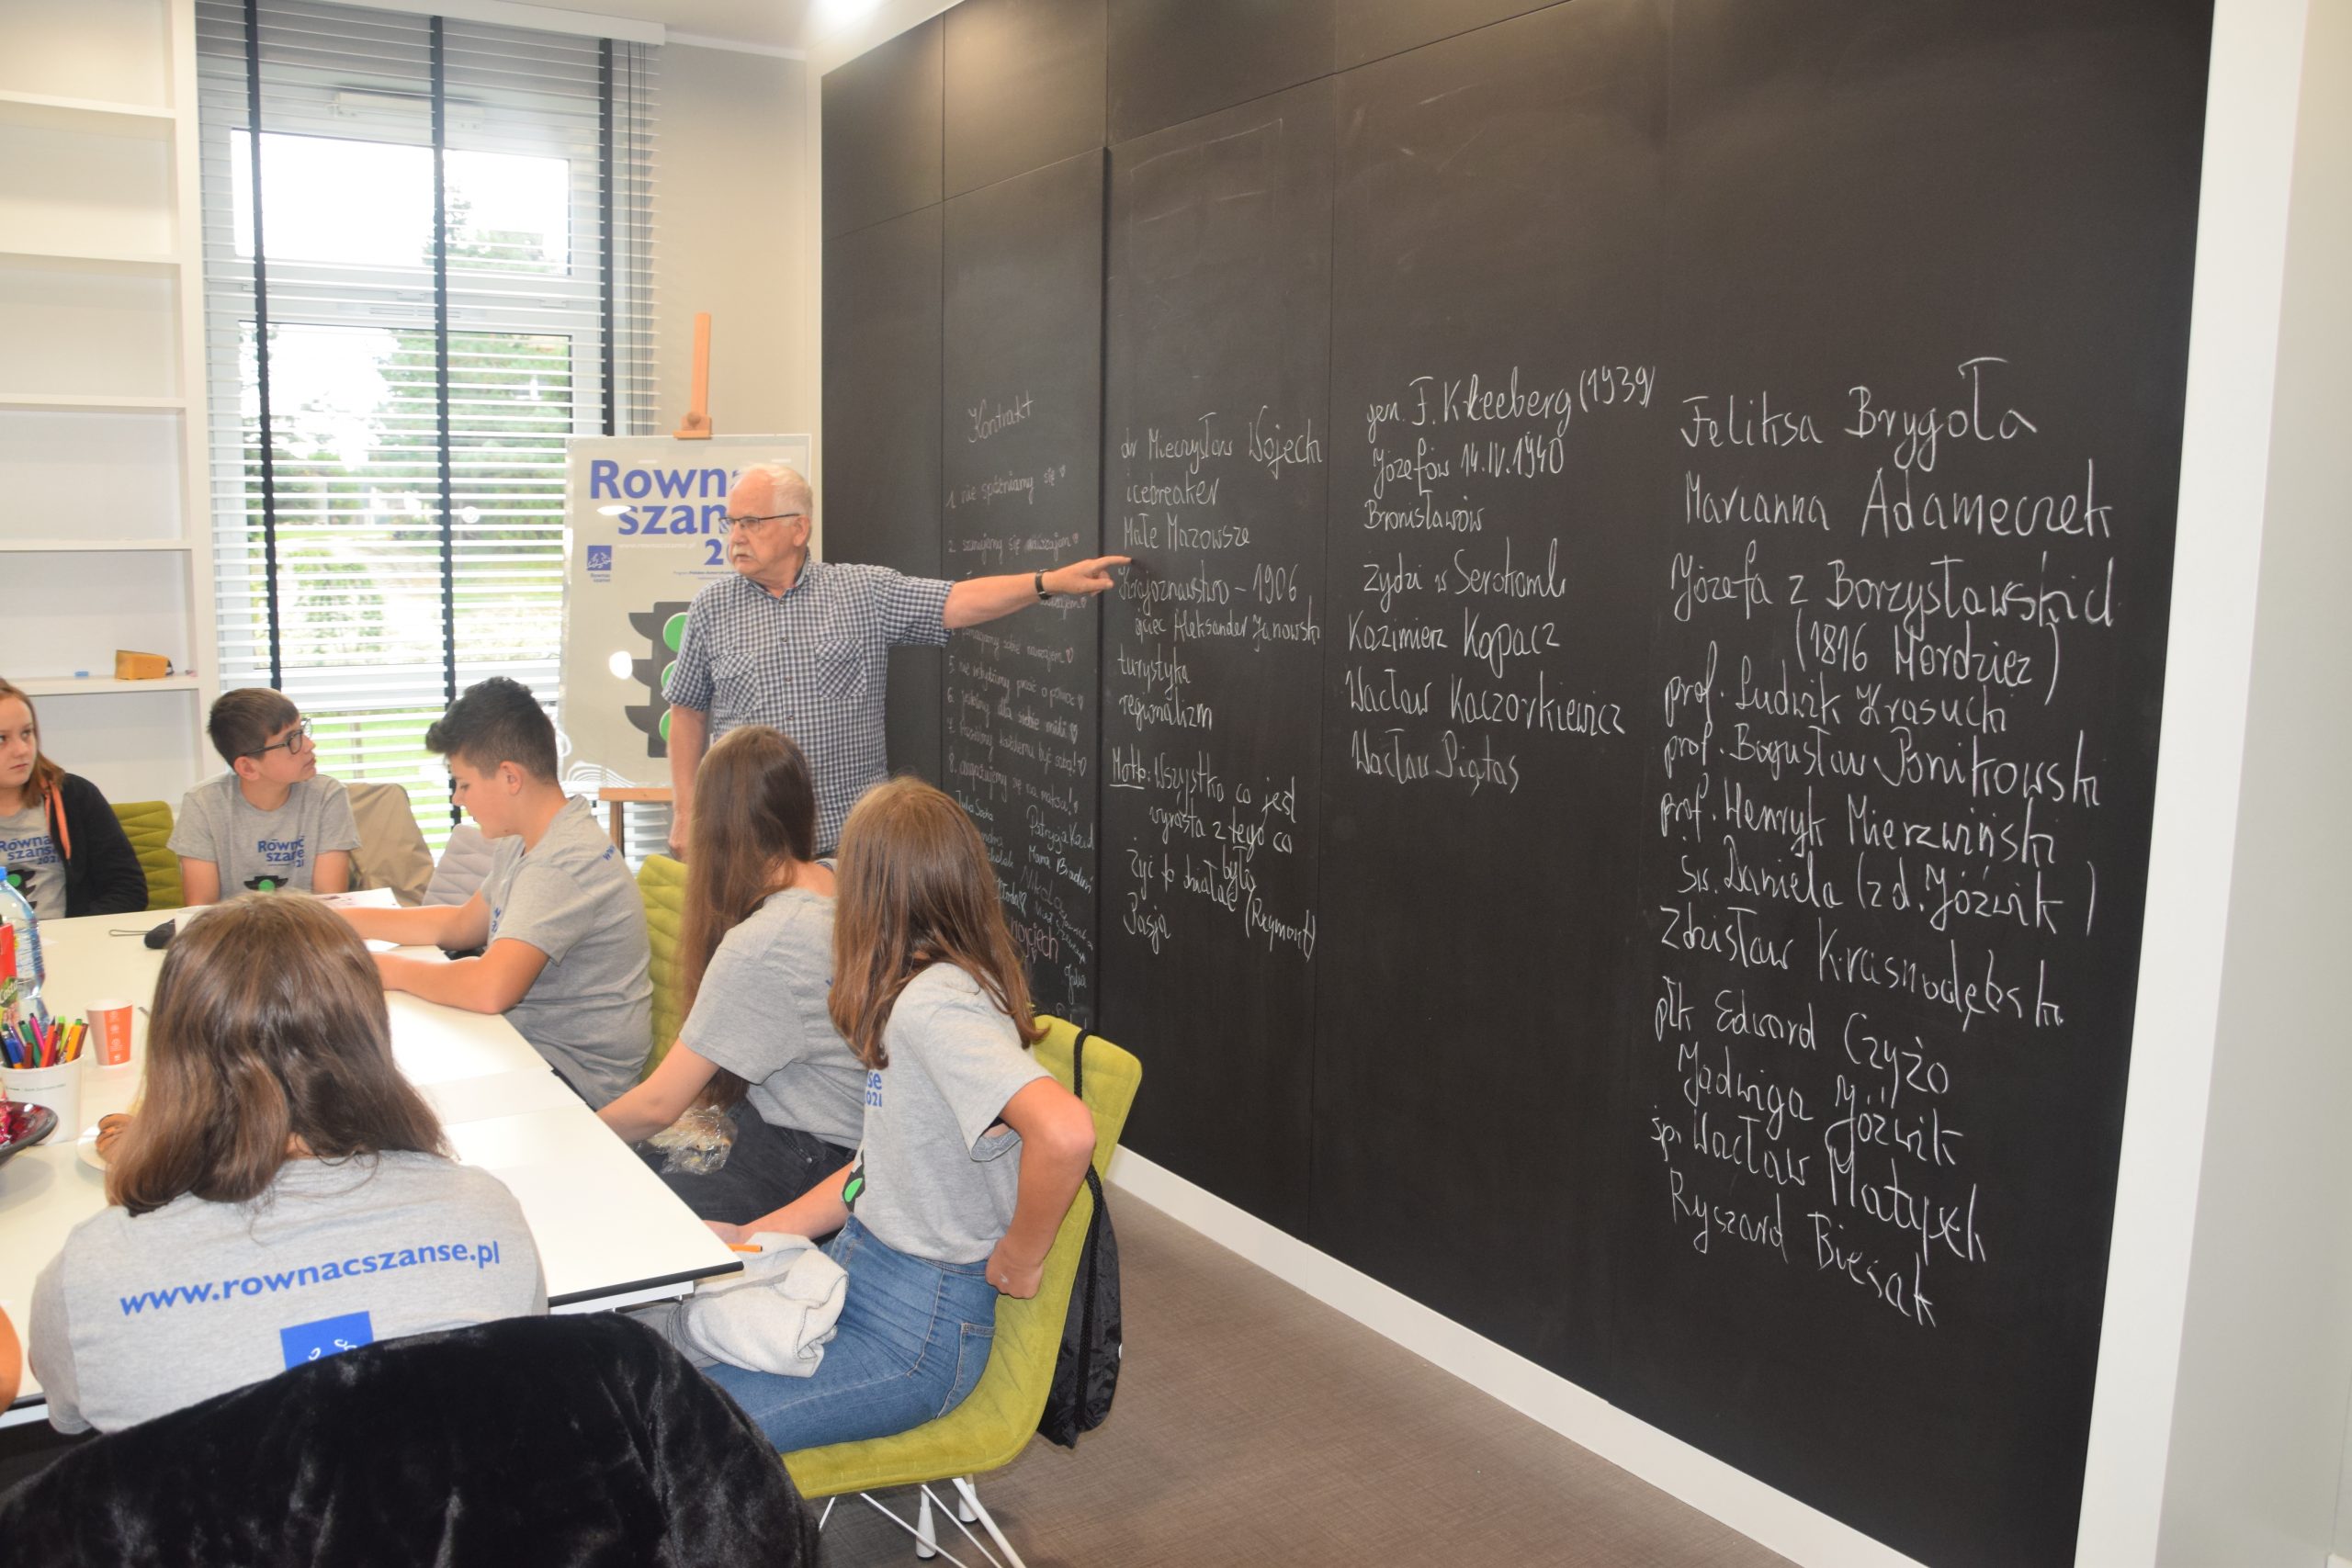 Równać
szanse
www.rownacszanse.pl
Równać
Szanse
Kontrakt
1. nie spóźniamy się ♡
2. szanujemy się nawzajem ♡
pomagamy sobie nawzajem ♡
6. jesteśmy dla siebie mili ♡
8. angażujemy się na maksa! ♡
Patrycja
Julia
dr Mieczysław Wojech
icebreaker
Małe Mazowsze
Krajoznawstwo - 1906
ojciec Aleksander Janowski
turystyka
regionalizm
Motto: Wszystko co jest
wyrasta z tego co
było
Żyć to działać (Reymont)
Pasja
gen. F. Kleeberg (1939)
Józefów 14.IV.1940
Bronisławów
Żydzi w Serokomli
Kazimierz Kopacz
Wacław Kaczorkiewicz
Wacław Piątas
Feliksa Brygoła
Marianna Adameczek
Józefa z Borzysławskich
(1816 Hordzież)
prof. Ludwik Krasucki
prof. Bogusław Ponikowski
prof. Henryk Mierzwiński
św. Daniela (z d. Jóźwik)
Zdzisław Krasnodębski
płk Edward Czyżo
Jadwiga Jóźwik
śp. Wacław Matysek
Ryszard Biesak
Równać
szanse
2021
Równać
szanse
21
www.rownacszanse.pl